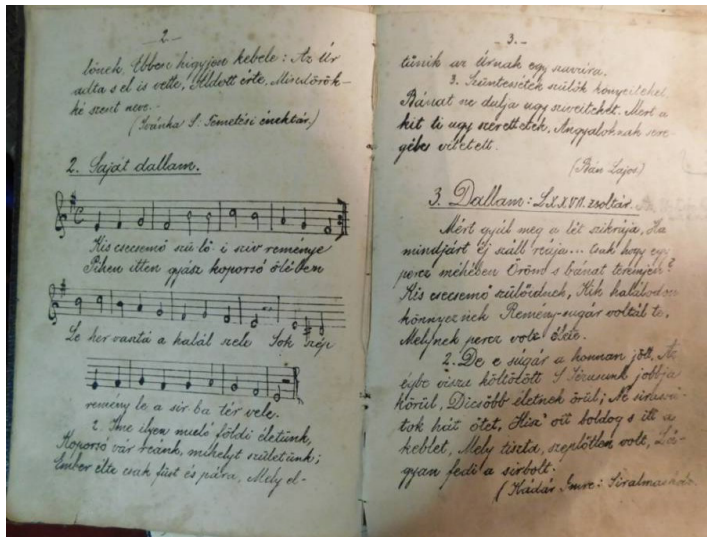 2.
lönek, Ebben higyjen kebele: Az Úr
adta s el is vette, Áldott érte, Mindörök-
ké szent neve.-
(Ivánka S: Temetési énektár.)
2. Saját dallam.
Kis csecsemő szü lő i szív reménye
Pihen itten gyász koporsó ölében
Le her vasztá a halál szele Sok szép
remény le a sír ba tér vele.
2. Ime ilyen muló földi életünk,
Koporsó vár reánk, mihelyt születünk;
Ember élte csak füst és pára, Mely el-
3.-
tűnik az Úrnak egy szavára.
3. Szüntessétek szülők könyeiteket
Bánat ne dulja ugy sziveiteket. Mert a
kit ti ugy szerettetek, Angyaloknak sere-
gébe vitetett.
(Bán Lajos)
3. Dallam: LXXVII. zsoltár.
Mért gyúl meg a lét szikrája, Ha
mindjárt éj száll reája... Csak hogy egy
percz méhében Öröm s bánat teremjen?
Kis csecsemő szülőidnek, Kik halálodon
könnyeznek Remény-sugár voltál te,
Melynek percz volt élete.
2. De e súgár a honnan jött, Az
égbe vissza költözött S Jézusunk jobbja
körül, Dicsőbb életnek örül; Ne sirassá-
tok hát őtet, Hisz' ott boldog s itt a
keblet, Mely tiszta, szeplőtlen volt, Lá-
gyan fedi a sírbolt.
(Kádár Imre: